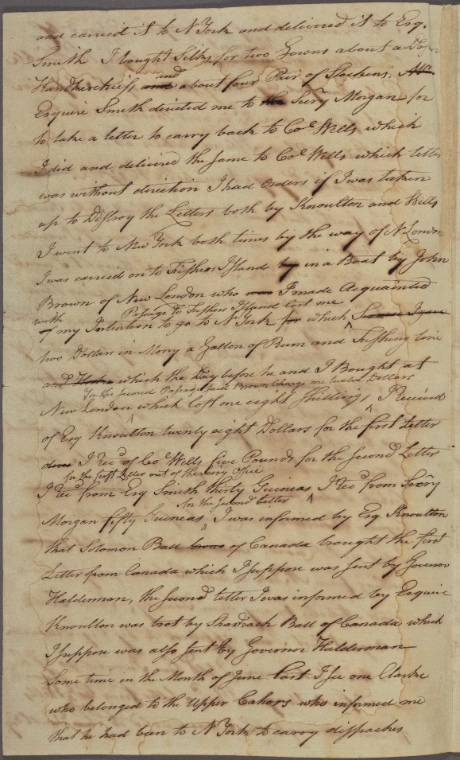 and carried it to N York and delivered it to Esq.
Smith I bought Silks for two Gowns about a
Handkerchiefs and about four Pair of Stockens,
Esquire Smith directed me to Secry Morgan for
to take a letter to carry back to Coo Wells which
I did and delivered the same to Coo Wells which letter
was without direction I had orders if I was taken
up to Distroy the Letters both by Knoulton and Wells
I went to New York both times by the way of N. London
I was carried on to Fishers Island by in a Boat by John
Brown of New London who I made Acquainted
with Passage to Fishers Island Cost me
of my Intention to go to N York for which
two Dollars in Mony a Gallon of Rum and Fishing line
which the Day before he and I Bought at
In the second Passage said Brown Charge me twelve Dollars
New London which Cost one eight shillings I Received
of Esq Knoulton twenty eight Dollars for the first Letter
I Recd of Coo Wells five Pounds for the second Letter
for the first Letter out of the Secry Office
I Recd from Esq Smith thirty Guineas I Recd from Secry
for the second Letter
Morgan fifty Guineas I was informed by Esq Knoulton
that Solomon Ball of Canada brought the first
Letter from Canada which I suppose was sent by Governor
Halderman, the second letter I was informed by Esquire
Knoulton was brot by Shadrach Ball of Canada which
I suppose was also sent by Governor Halderman
Some time in the Month of June last I see one Clarke
who belonged to the Upper Cohors who informed me
that he had been to N York to carry dispaches